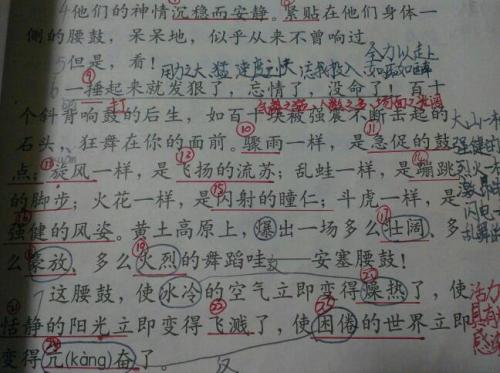 4他们的神情沉稳而安静。紧贴在他们身体一
侧的腰鼓，呆呆地，似乎从来不曾响过。
5但是，看！
用力之大、猛、速度之快
全力以赴上
如痴如醉
6一捶起来就发狠了，忘情了，没命了！百十
打
个斜背响鼓的后生，如百十块被强震不断击起的
石头，狂舞在你的面前。骤雨一样，是急促的鼓
点；旋风一样，是飞扬的流苏；乱蛙一样，是蹦跳
的脚步；火花一样，是闪射的瞳仁；斗虎一样，是
强健的风姿。黄土高原上，爆出一场多么壮阔、多
么豪放、多么火烈的舞蹈哇——安塞腰鼓！
7这腰鼓，使冰冷的空气立即变得燥热了，使
恬静的阳光立即变得飞溅了，使困倦的世界立即
变得亢(kàng)奋了。
反